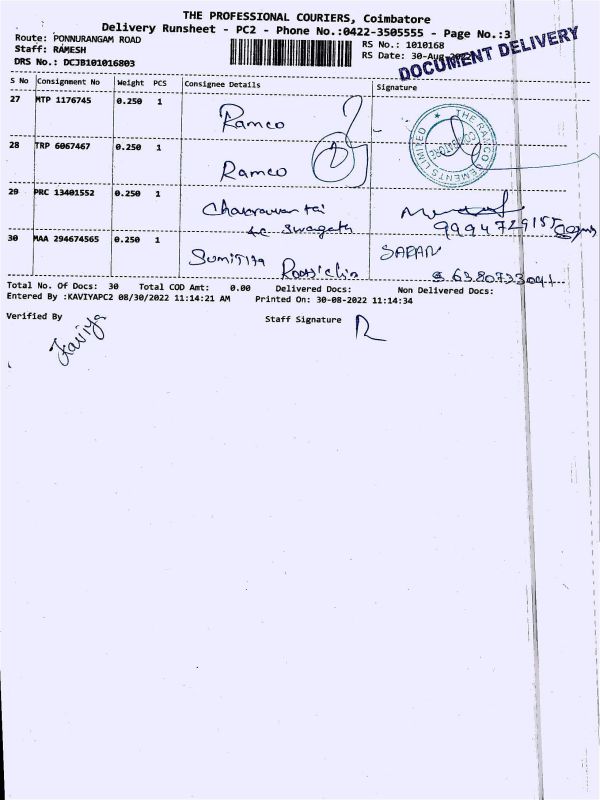 THE PROFESSIONAL COURIERS, Coimbatore
Delivery Runsheet - PC2 - Phone No.:0422-3505555 - Page No.:3
Route: PONNURANGAM ROAD
RS No.: 1010168
Staff: RAMESH
RS Date: 30-Aug-2022
DOCUMENT DELIVERY
DRS No.: DCJB101016803
S No Consignment No Weight PCS Consignee Details Signature
27 MTP 1176745 0.250 1 Ramco
THE RAMCO CEMENTS LIMITED
28 TRP 6067467 0.250 1 Ramco
29 PRC 13401552 0.250 1
30 MAA 294674565 0.250 1
Total No. Of Docs: 30 Total COD Amt: 0.00 Delivered Docs: Non Delivered Docs:
Entered By :KAVIYAPC2 08/30/2022 11:14:21 AM Printed On: 30-08-2022 11:14:34
Verified By Staff Signature
Kaviya